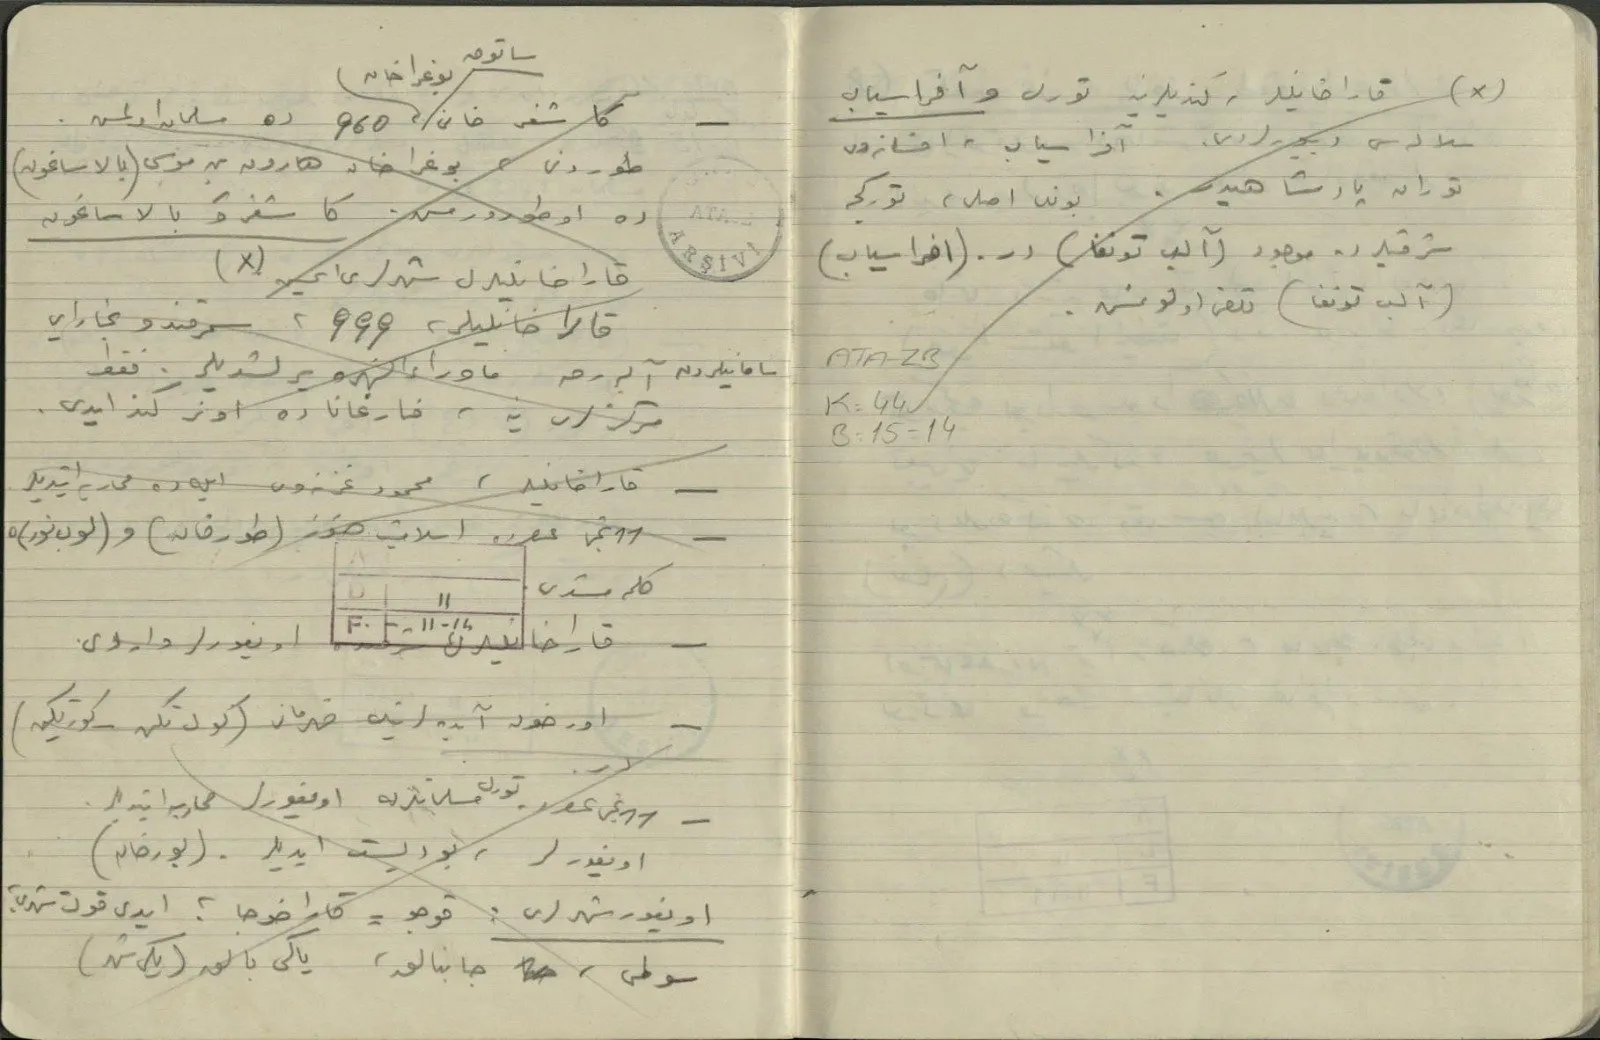 ساتوق
بوغرا خان)
— كاشغر خانى 960 ده مسلمان اولمش.
بوغرا خان هارون بن موسى (بالاساغون)
ده اوطورورمش. كاشغر و بالاساغون
قاراخانيلرك شهرلرى ايدى. (x)
قاراخانيليلر، 999، سمرقند و بخارايى
سامانيلردن آلهرق ماوراءالنهره يرلشديلر. فقط
مركزلرى ينه، فارغاناده اوزكند ايدى.
— قاراخانيلر، محمود غزنوى ايله ده محاربه ايتديلر
— ١١نجى عصرده اسلاميت هنوز (طورفان) و (لوب نور)ه
كلمهمشدى.
— قاراخانيلرك اويغورلر واردى.
— اورخون آبدهلرينك قهرمانى (كول تكين كورتكين)
در.
— ١١نجى عصرده تورك مسلمانلرله اويغورلر محاربه ايتديلر.
اويغورلر، بوديست ايديلر. (بورخان)
اويغور شهرلرى: قوجو = قاراخوجا؛ ايدى قوت شهرى؛
سولمى، جانبالق، ياكى بالق (يكى شهر)
ATA-
ARŞİVİ
A
D 11
F. 11-14
(x) قاراخانيلر، كنديلرينه تورك و آفراسياب
سلالهسى ديييورلردى. آفراسياب، افسانهوى
توران پادشاهيدر. بونك اصلى، توركجه
شرقيلرده موجود (آلپ تونغا) در. (افراسياب)
(آلپ تونغا) تلقى اولونمش.
ATA-ZB
K: 44
B: 15-14